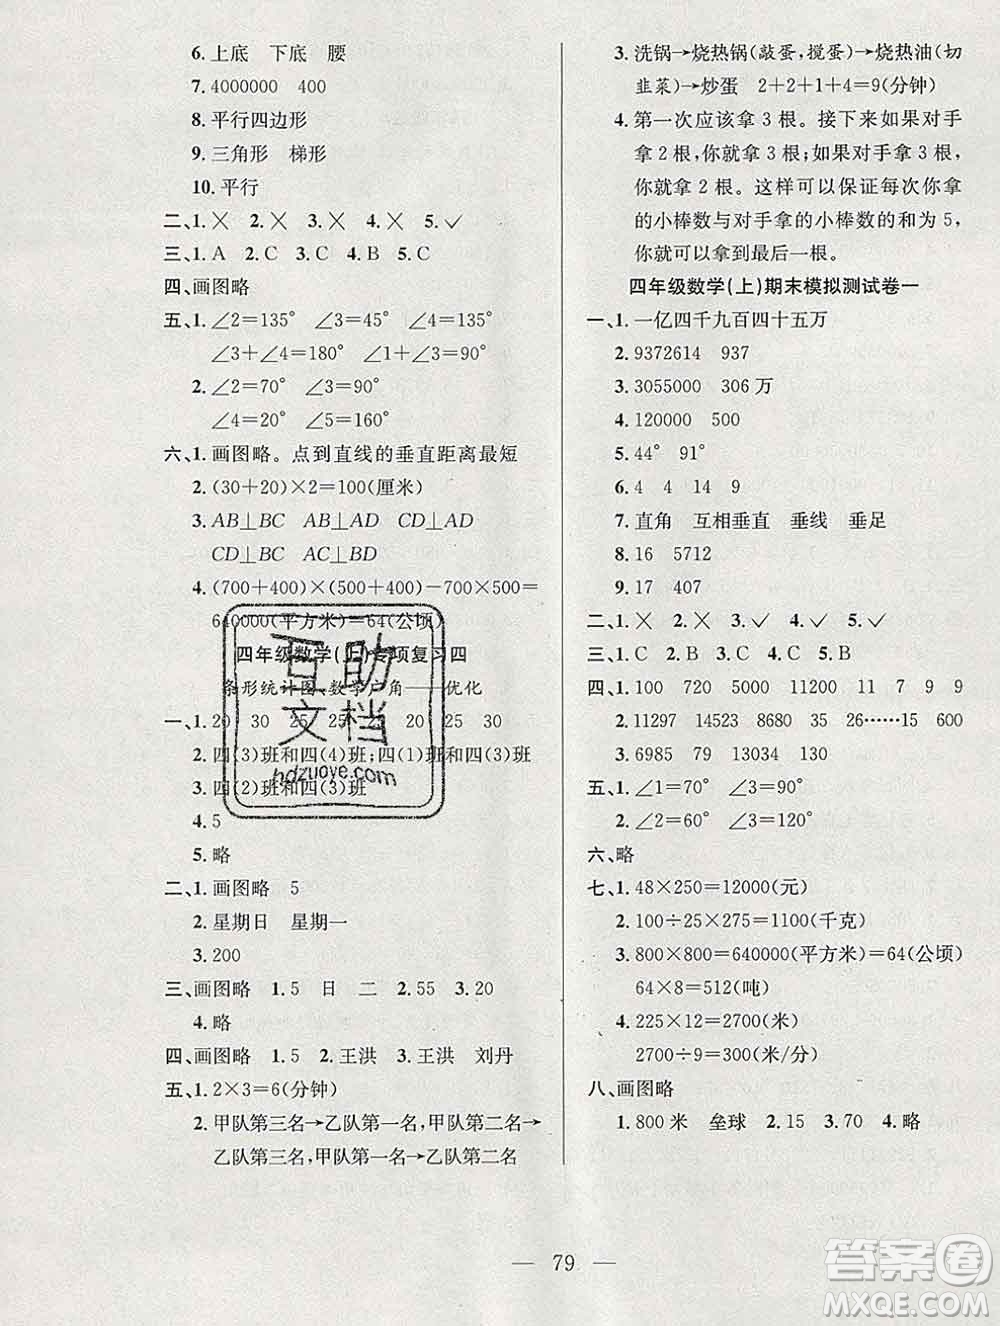 6. 上底 下底 腰
7. 4000000 400
8. 平行四边形
9. 三角形 梯形
10. 平行
二、1. × 2. × 3. × 4. × 5. ✓
三、1. A 2. C 3. C 4. B 5. C
四、画图略
五、1. ∠2=135° ∠3=45° ∠4=135°
∠3+∠4=180° ∠1+∠2=180°
2. ∠2=70° ∠3=20°
∠4=20° ∠5=160°
六、1. 画图略。点到直线的垂直距离最短
2. (30+20)×2=100(厘米)
3. AB⊥BC AB⊥AD CD⊥AD
CD⊥BC AC⊥BD
4. (700+400)×(500+400)-700×500=
640000(平方米)=64(公顷)
四年级数学(上)专项复习四
条形统计图、数学广角——优化
一、1. 20 30 25 25 20 25 30
2. 四(3)班和四(4)班;四(1)班和四(3)班
3. 四(2)班和四(3)班
4. 5
5. 略
二、1. 画图略 5
2. 星期日 星期一
3. 200
三、画图略 1. 5 日 二 2. 55 3. 20
4. 略
四、画图略 1. 5 2. 王洪 3. 王洪 刘丹
五、1. 2×3=6(分钟)
2. 甲队第三名→乙队第一名,甲队第二名→
乙队第三名,甲队第一名→乙队第二名
3. 洗锅→烧热锅(敲蛋,搅蛋)→烧热油(切
韭菜)→炒蛋 2+2+1+4=9(分钟)
4. 第一次应该拿3根。接下来如果对手
拿2根,你就拿3根;如果对手拿3根,
你就拿2根。这样可以保证每次你拿
的小棒数与对手拿的小棒数的和为5,
你就可以拿到最后一根。
四年级数学(上)期末模拟测试卷一
一、1. 一亿四千九百四十五万
2. 9372614 937
3. 3055000 306万
4. 120000 500
5. 44° 91°
6. 4 4 14 9
7. 直角 互相垂直 垂线 垂足
8. 16 5712
9. 17 407
二、1. × 2. × 3. × 4. ✓ 5. ✓
三、1. C 2. B 3. A 4. B 5. C
四、1. 100 720 5000 12000 11 7 9 9
2. 11297 14523 8680 35 26……15 600
3. 6985 79 13034 130
五、1. ∠1=70° ∠3=90°
2. ∠2=60° ∠3=120°
六、略
七、1. 48×250=12000(元)
2. 100÷25×275=1100(千克)
3. 800×800=640000(平方米)=64(公顷)
64×8=512(吨)
4. 225×12=2700(米)
2700÷9=300(米/分)
八、画图略
1. 800米 垒球 2. 15 3. 70 4. 略
互助
文档
hdzuoye.com
79
答案圈
MXQE.COM